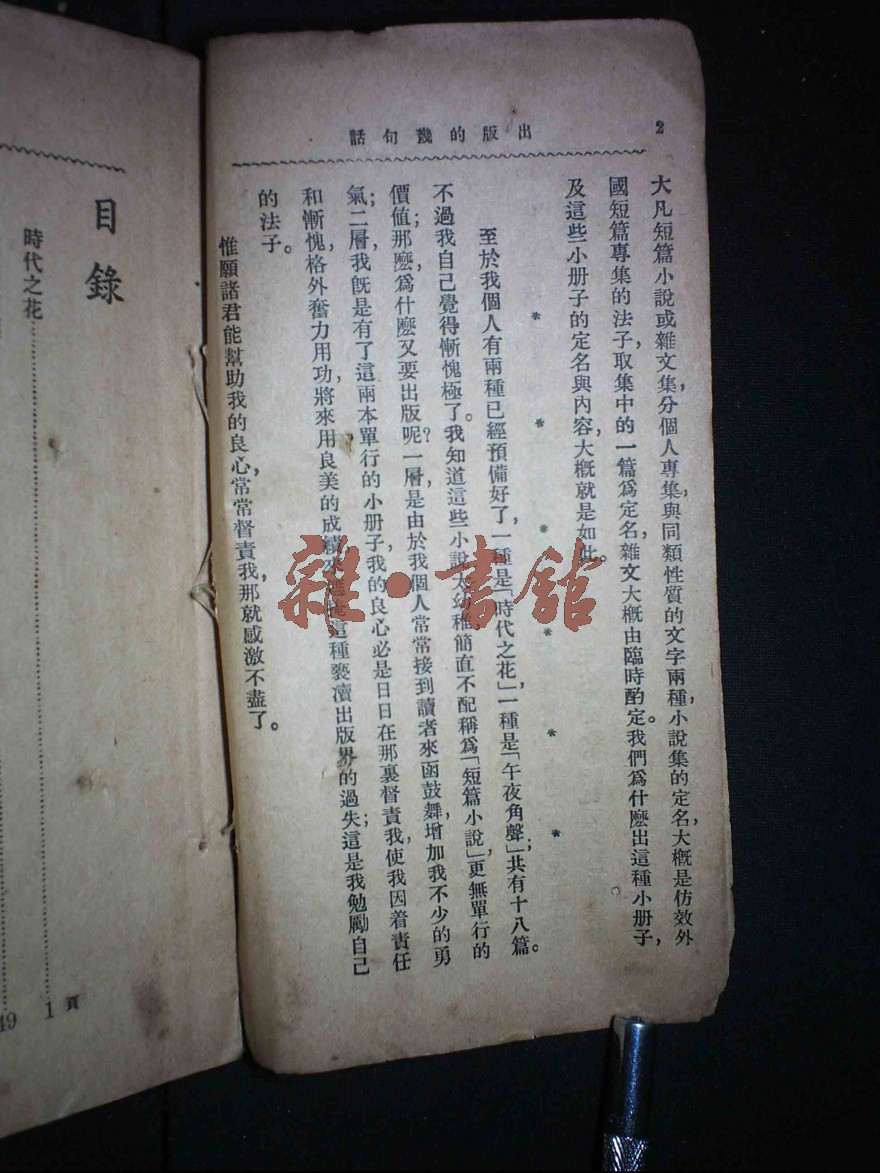 出版的幾句話
2
大凡短篇小說或雜文集，分個人專集與同類性質的文字兩種，小說集的定名，大概是仿效外
國短篇專集的法子，取集中的一篇爲定名，雜文大概由臨時酌定。我們爲什麽出這種小册子，
及這些小册子的定名與內容，大概就是如此。
* * * * * *
至於我個人有兩種已經預備好了，一種是「時代之花」，一種是「午夜角聲」；共有十八篇。
不過我自己覺得慚愧極了。我知道這些小說太幼稚，簡直不配稱爲「短篇小說」，更無單行的
價値；那麽爲什麽又要出版呢？一層是由於我個人常常接到讀者來函鼓舞，增加我不少的勇
氣；二層，我旣是有了這兩本單行的小册子，我的良心必是日日在那裏督責我，使我因着責任
和慚愧，格外奮力用功，將來用良美的成績來遮掩這種褻瀆出版界的過失；這是我勉勵自己
的法子。
惟願諸君能幫助我的良心，常常督責我，那就感激不盡了。
目錄
時代之花
1 頁
49
雜·書館